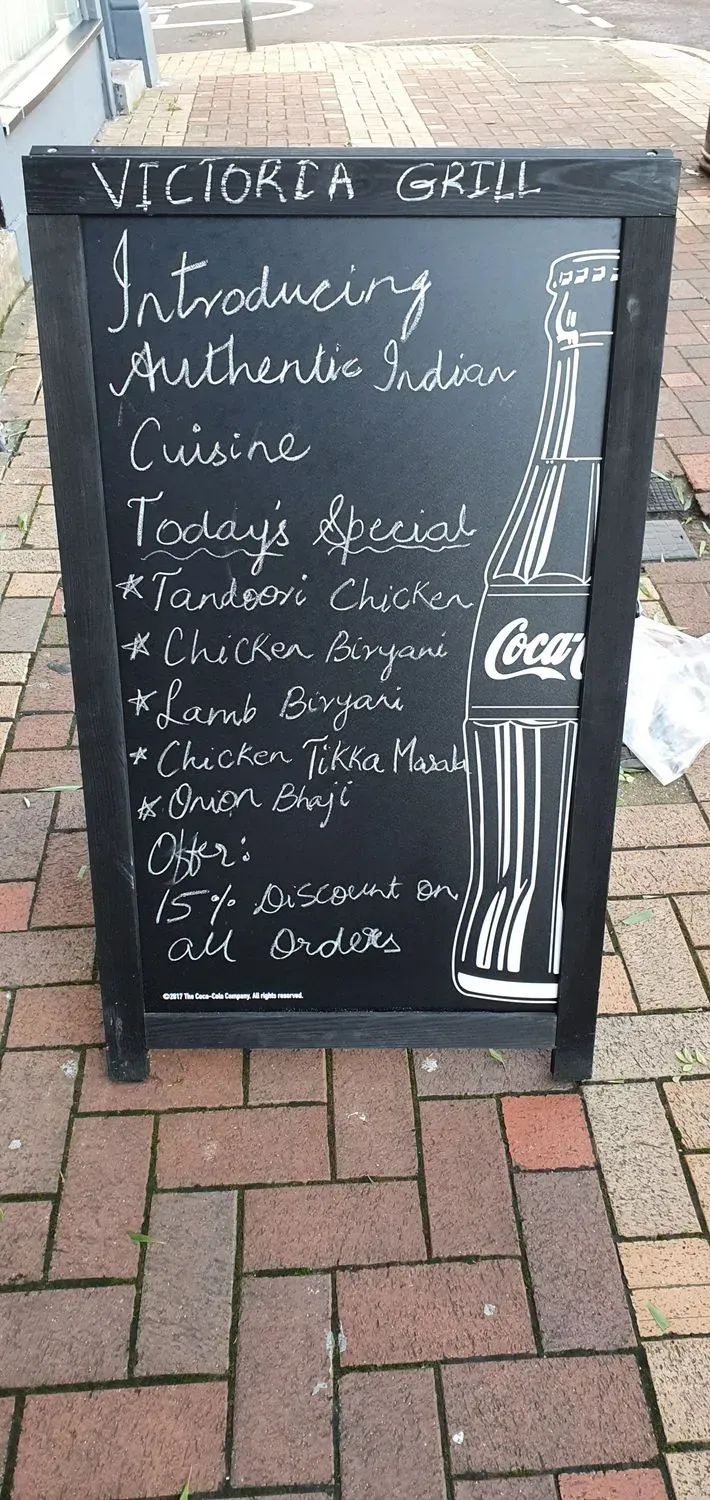 VICTORIA GRILL
Introducing
Authentic Indian
Cuisine
Today's Special
* Tandoori Chicken
* Chicken Biryani
* Lamb Biryani
* Chicken Tikka Masala
* Onion Bhaji
Offer:
15% Discount on
all Orders
Coca-C
©2017 The Coca-Cola Company. All rights reserved.